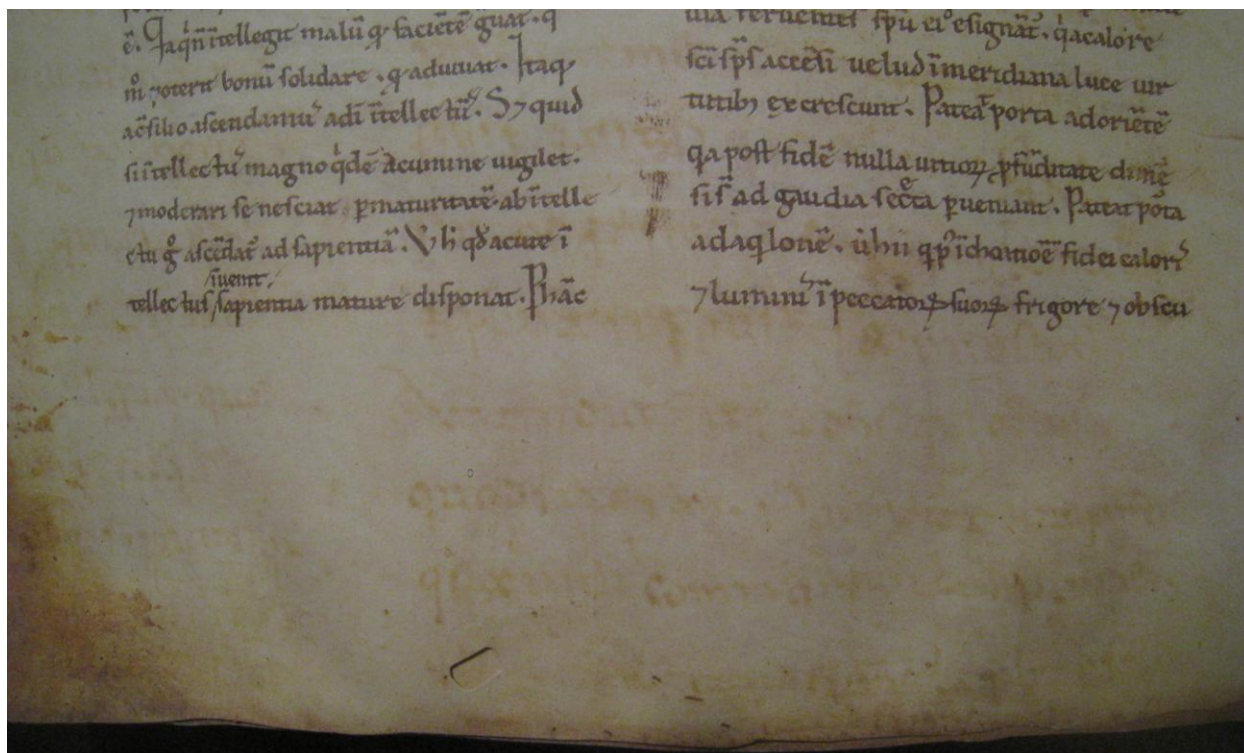 ē. Q̄a qn̄ ītellegit malū q̄ faciētē gͣuat. q
m̊ poterit bonū solidare. q̄ adiuuat. Itaq;
a cͦsilio ascendamꝰ ad ītellectū. S; quid
si ītellectꝰ magno qͥdē acumine uigilet.
⁊ moderari se nesciat ꝑ maturitatē. ab ītelle
ctu gͦ ascēdat᷑ ad sapientiā. Vt̄ h̄ qd̄ acute ī
iuenit.
tellectus sapientia mature disponat. P hāc
sc̄i sp̄s accēsi uelud ī meridiana luce uir
tutib; excrescunt. Pateat porta ad oriētē
q̄a post fidē nulla uitioꝝ ꝓfūditate dimē
si sͥ ad gaudia secᵉta ꝑueniant. Pateat poͬta
ad aq̇lonē. ù hii q̇ pꝰ īchoatioē fidei calorꝭ
⁊ luminꝭ ī peccatoꝝ suoꝝ frigore ⁊ obscu